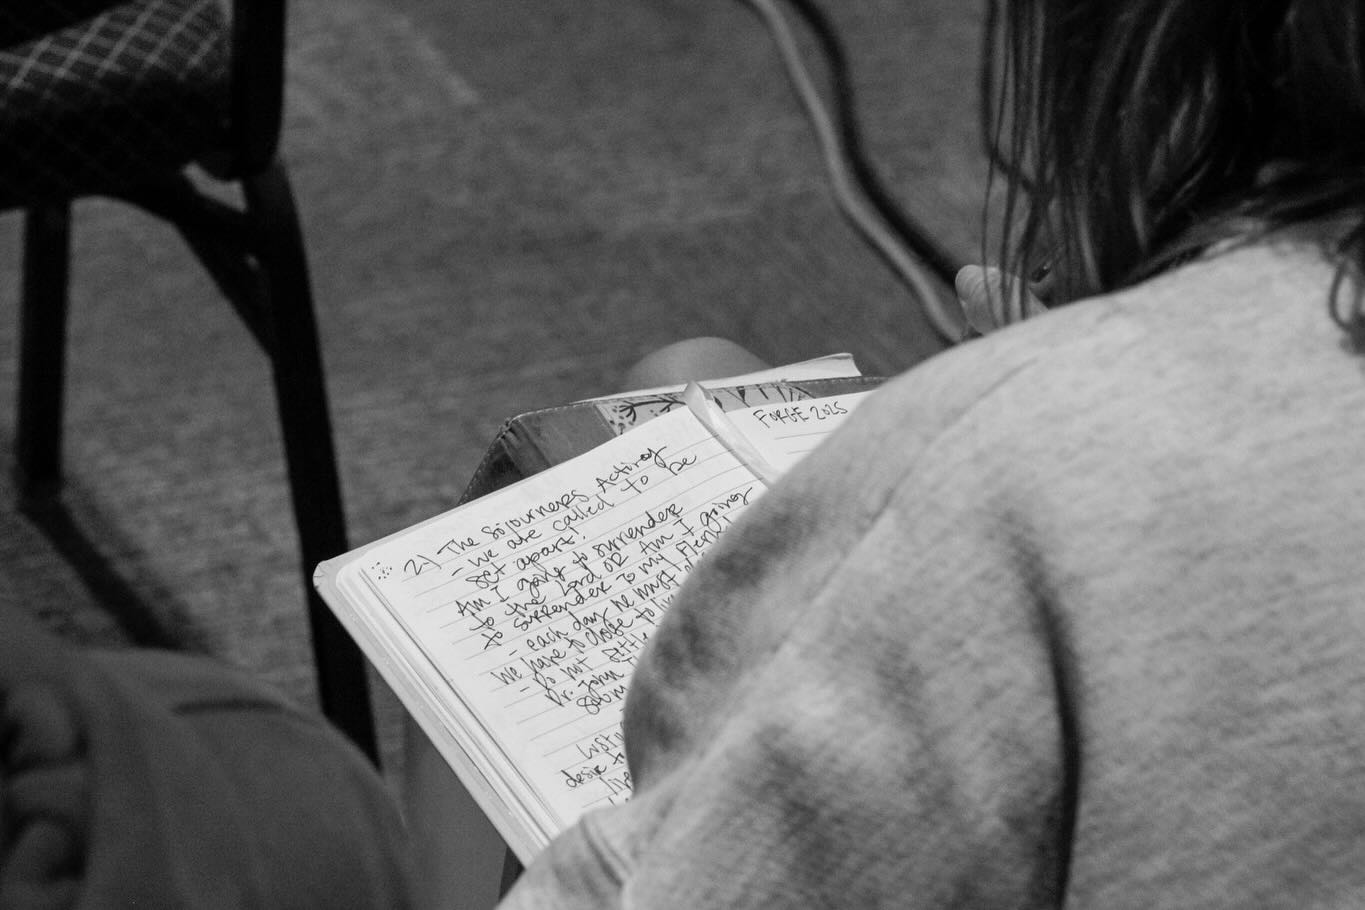 2.) The Sojourners Activity
- we are called to be
set apart!
Am I going to surrender
to the Lord OR Am I going
to surrender to my flesh
- each day we must
we have to chose to
- Do not
Dr. John
desire to
FORGE 2025